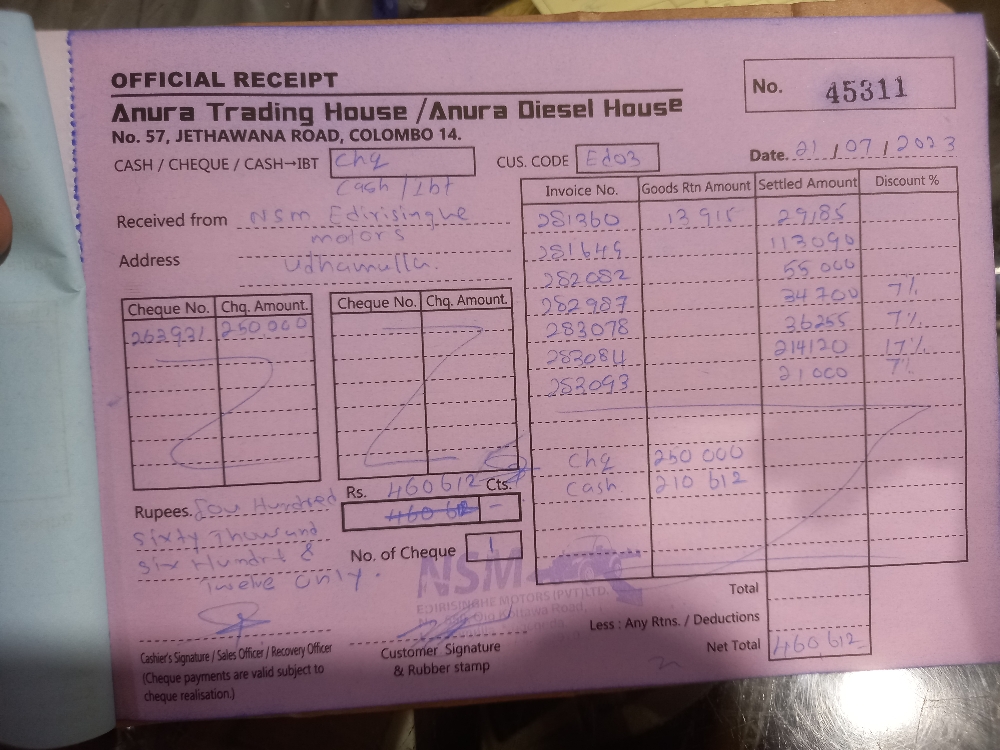 OFFICIAL RECEIPT
No. 45311
Anura Trading House /Anura Diesel House
No. 57, JETHAWANA ROAD, COLOMBO 14.
CASH / CHEQUE / CASH→IBT Chq
Cash / Ibt
CUS. CODE Ed03
Date. 21 / 07 / 2023
Received from NSM Edirisinghe
motors
Address Udhamulla.
Invoice No. Goods Rtn Amount Settled Amount Discount %
281360 13 915 29185
281649 113090
282082 55 000
282987 34 700 7%
283078 36255 7%
283084 214120 17%
283093 21 000 7%
Chq 250 000
Cash 210 612
Cheque No. Chq. Amount. Cheque No. Chq. Amount.
263931 250 000
Rupees. Four Hundred
sixty Thousand
six Hundrt &
Twelve Only.
Rs. 460 612 Cts.
460 612 –
No. of Cheque 1
NSM
EDIRISINGHE MOTORS (PVT) LTD.
Total
Less : Any Rtns. / Deductions
Net Total 460 612
Cashier's Signature / Sales Officer / Recovery Officer
(Cheque payments are valid subject to
cheque realisation.)
Customer Signature
& Rubber stamp